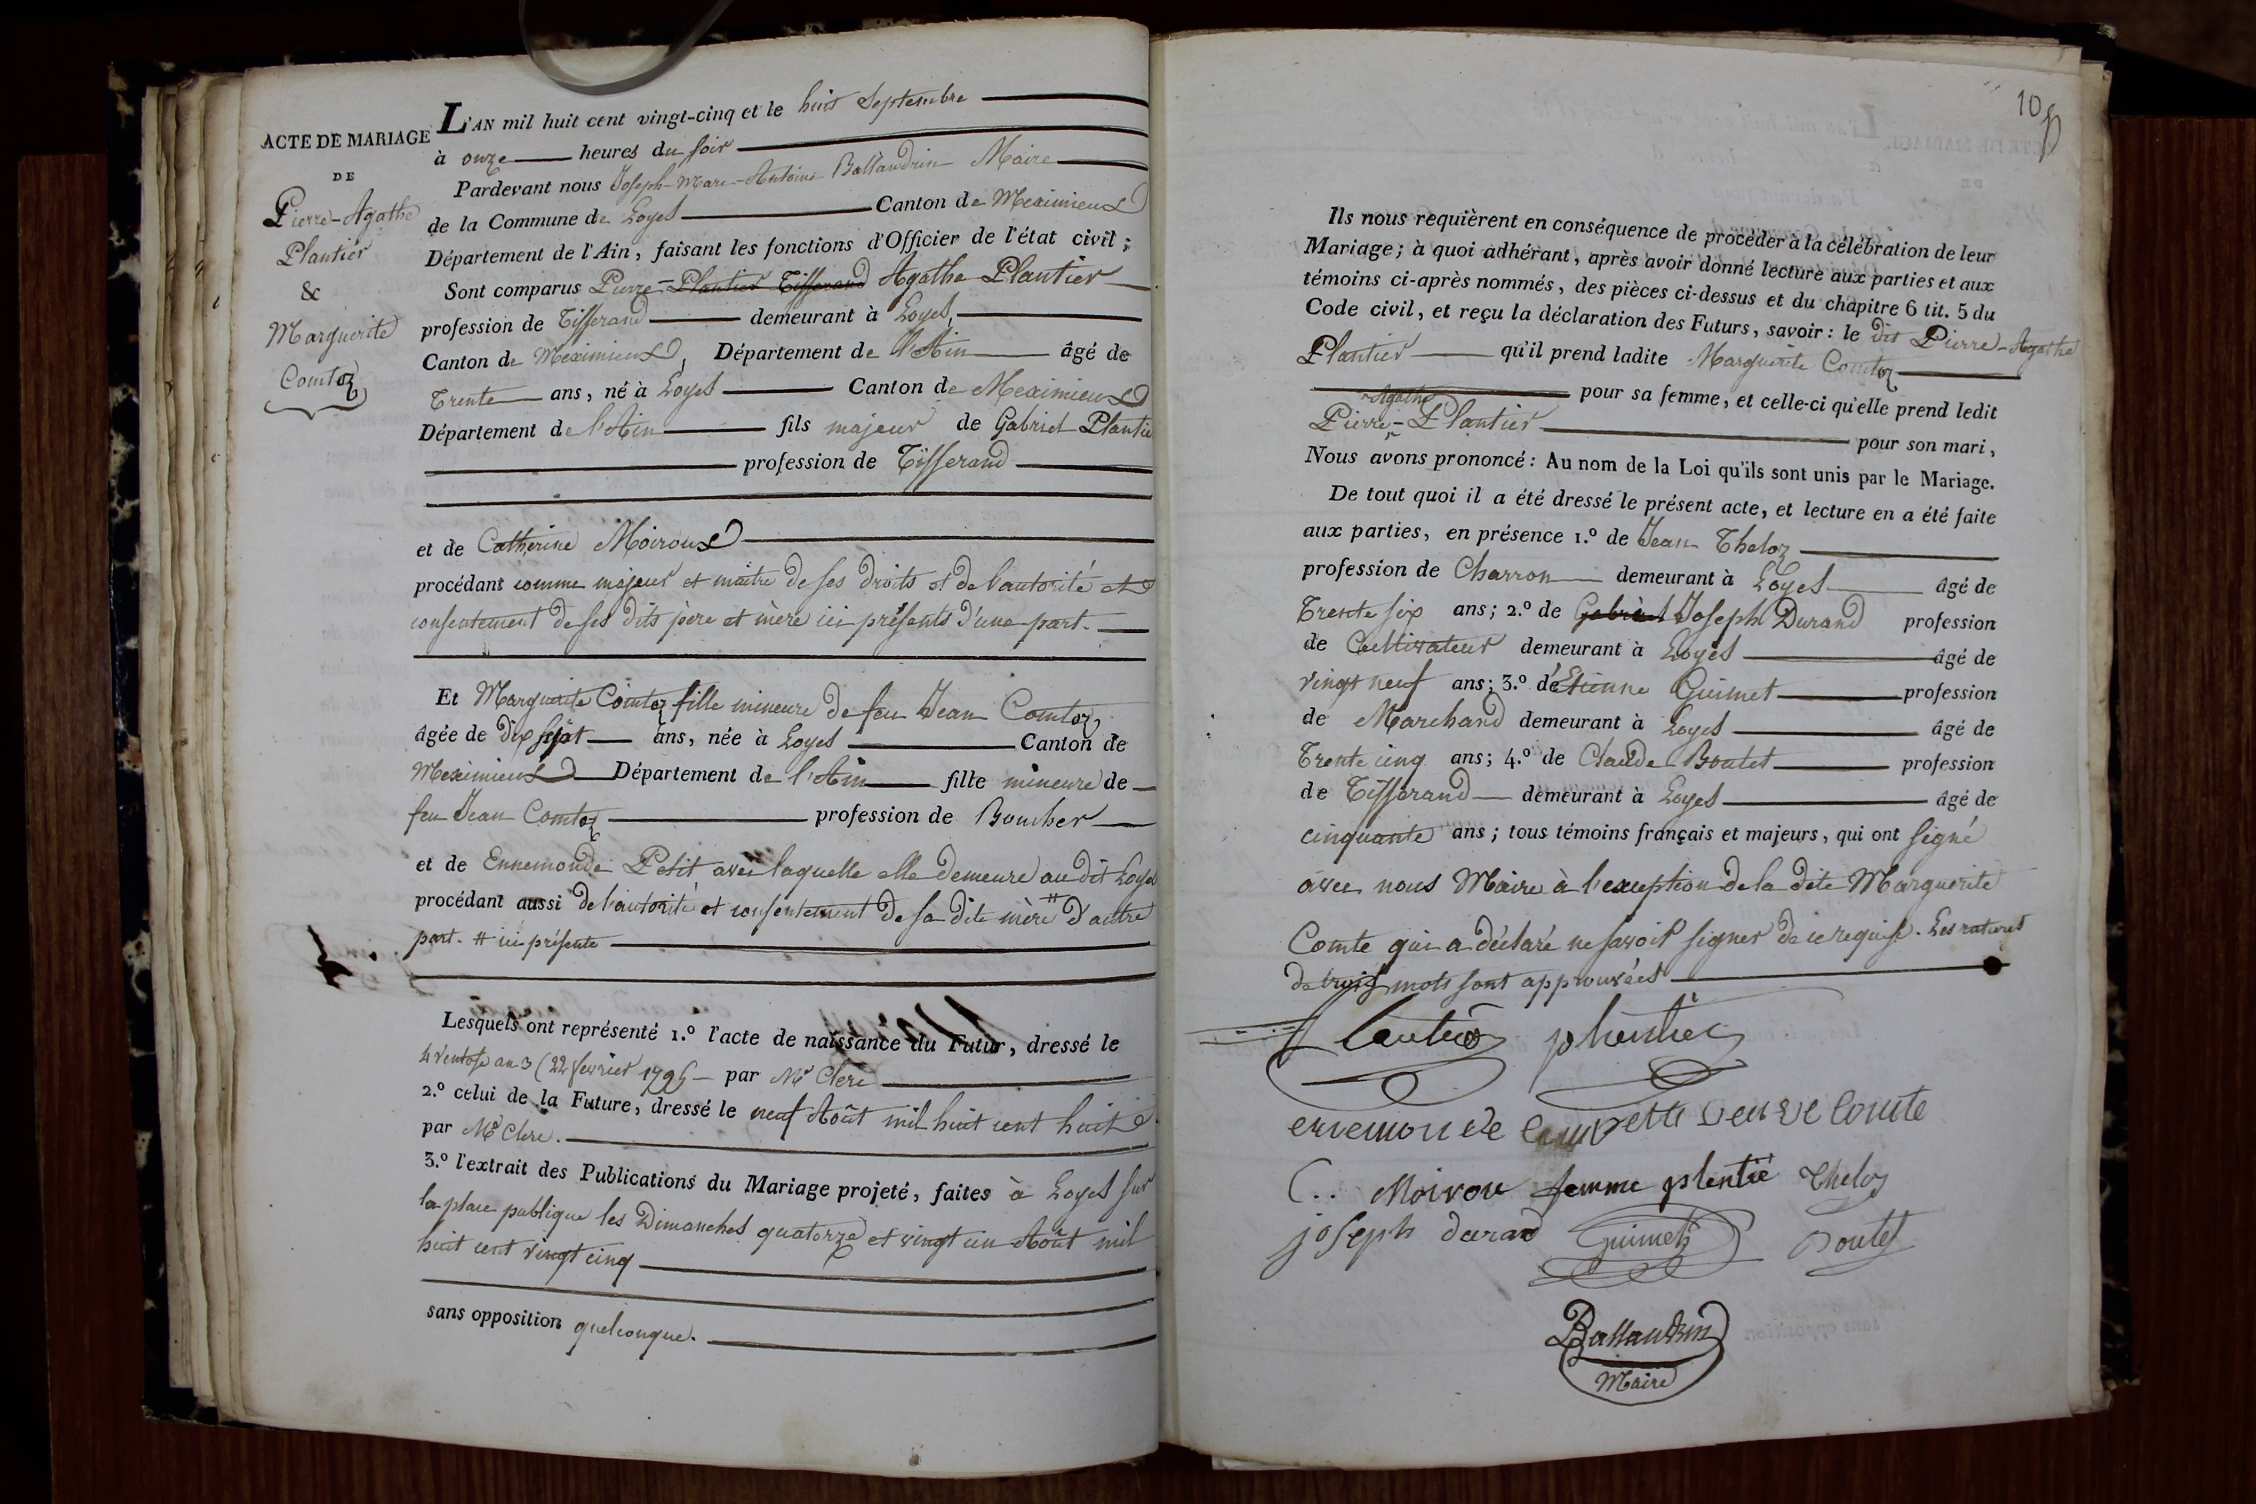 ACTE DE MARIAGE
DE
Pierre-Agathe
Plantier
&
Marguerite
Comtoz
L'AN mil huit cent vingt-cinq et le huit Septembre
à onze heures du soir
Pardevant nous Joseph-Marc-Antoine Ballandrin Maire
de la Commune de Loyes Canton de Meximieux
Département de l'Ain, faisant les fonctions d'Officier de l'état civil;
Sont comparus Pierre-Plantier Tisserand Agathe Plantier
profession de Tisserand demeurant à Loyes,
Canton de Meximieux, Département de l'Ain âgé de
Trente ans, né à Loyes Canton de Meximieux
Département de l'Ain fils majeur de Gabriel Plantier
profession de Tisserand
et de Catherine Moiroux
procédant comme majeur et maitre de ses droits et de l'autorité et
consentement de ses dits père et mère ici présents d'une part.
Et Marguerite Comtoz fille mineure de feu Jean Comtoz
âgée de dix sept ans, née à Loyes Canton de
Meximieux Département de l'Ain fille mineure de
feu Jean Comtoz profession de Boucher
et de Ennemonde Petit avec laquelle elle demeure au dit Loyes
procédant aussi de l'autorité et consentement de sa dite mère # d'autre
part. # ici présente
Lesquels ont représenté 1.º l'acte de naissance du Futur, dressé le
4 ventose an 3 (22 fevrier 1795 par Mr Clerc
2.º celui de la Future, dressé le neuf Août mil huit cent huit
par Mr Clerc.
3.º l'extrait des Publications du Mariage projeté, faites à Loyes sur
la place publique les Dimanches quatorze et vingt un Août mil
huit cent vingt cinq
sans opposition quelconque.
10
Ils nous requièrent en conséquence de procéder à la célébration de leur
Mariage; à quoi adhérant, après avoir donné lecture aux parties et aux
témoins ci-après nommés, des pièces ci-dessus et du chapitre 6 tit. 5 du
Code civil, et reçu la déclaration des Futurs, savoir: le dit Pierre-Agathe
Plantier qu'il prend ladite Marguerite Comtoz
pour sa femme, et celle-ci qu'elle prend ledit
Agathe
Pierre-Plantier pour son mari,
Nous avons prononcé: Au nom de la Loi qu'ils sont unis par le Mariage.
De tout quoi il a été dressé le présent acte, et lecture en a été faite
aux parties, en présence 1.º de Jean Theloz
profession de Charron demeurant à Loyes âgé de
Trente six ans; 2.º de Gabriel Joseph Durand profession
de Cultivateur demeurant à Loyes âgé de
vingt neuf ans; 3.º de Etienne Guimet profession
de Marchand demeurant à Loyes âgé de
Trente cinq ans; 4.º de Claude Boutet profession
de Tisserand demeurant à Loyes âgé de
cinquante ans; tous témoins français et majeurs, qui ont signé
avec nous Maire à l'exception de la dite Marguerite
Comte qui a déclaré ne savoir signer de ce requise. Les ratures
de trois mots sont approuvées
plantier
veuve Comte
C.. Moirou femme plentié Theloz
joseph durand Guimet Boutet
Ballandrin
Maire